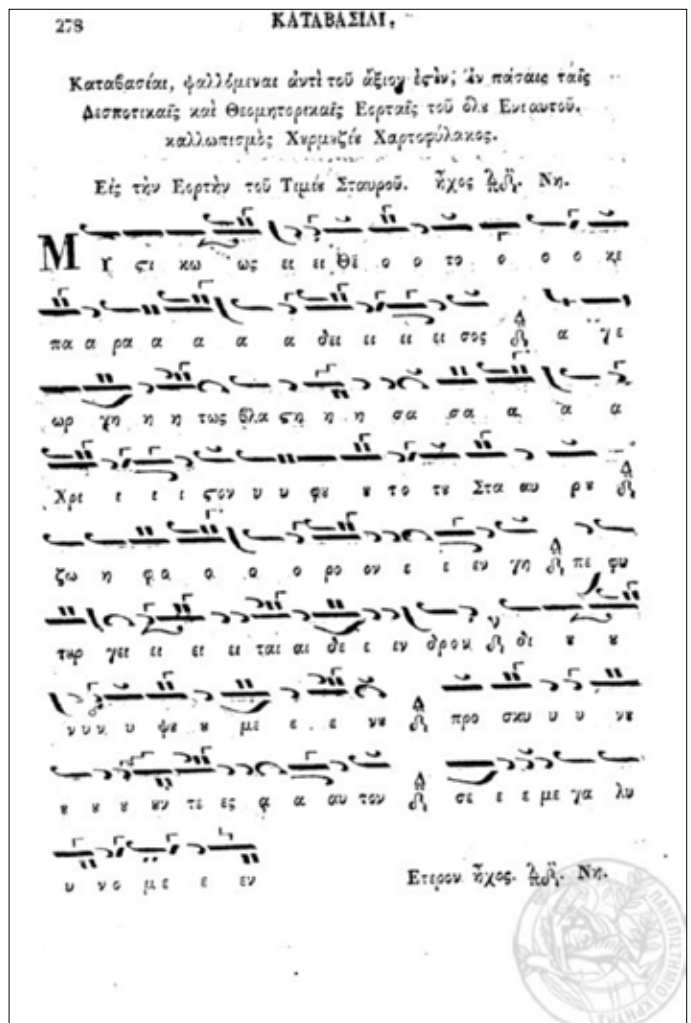 278 ΚΑΤΑΒΑΣΙΑΙ.
Καταβασίαι, ψαλλόμεναι ἀντὶ τοῦ ἄξιον ἐστὶν, ἐν πάσαις ταῖς
Δεσποτικαῖς καὶ Θεομητορικαῖς Εορταῖς τοῦ ὅλου Ενιαυτοῦ.
καλλωπισμὸς Χουρμουζίου Χαρτοφύλακος.
Εἰς τὴν Εορτὴν τοῦ Τιμίου Σταυροῦ. ἦχος Νη.
Μ υ στι κω ως ει ει Θε ο ο το ο ο ο κε
πα α ρα α α α α δει ει ει ει σος α γε
ωρ γη η η τως βλα στη η η σα σα α α α
Χρι ι ι ι στον υ υ φου ου το του Στα αυ ρου
ζω η φο ο ο ο ρο ον ε ε εν γη πε φυ
τουρ γει ει ει ει ται αι δε ε εν δρον δι ου ου
νυν υ ψου ου με ε ε νου προ σκυ υ υ νου
ου ου ου ουν τε ες α α αυ τον σε ε ε με γα λυ
υ νο με ε εν
Ετερον ἦχος. Νη.
ΠΑΝΕΠΙΣΤΗΜΙΟ ΚΡΗΤΗΣ